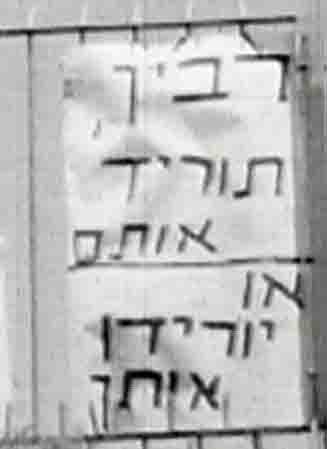 רבין
תוריד
אותם
או
יורידו
אותך